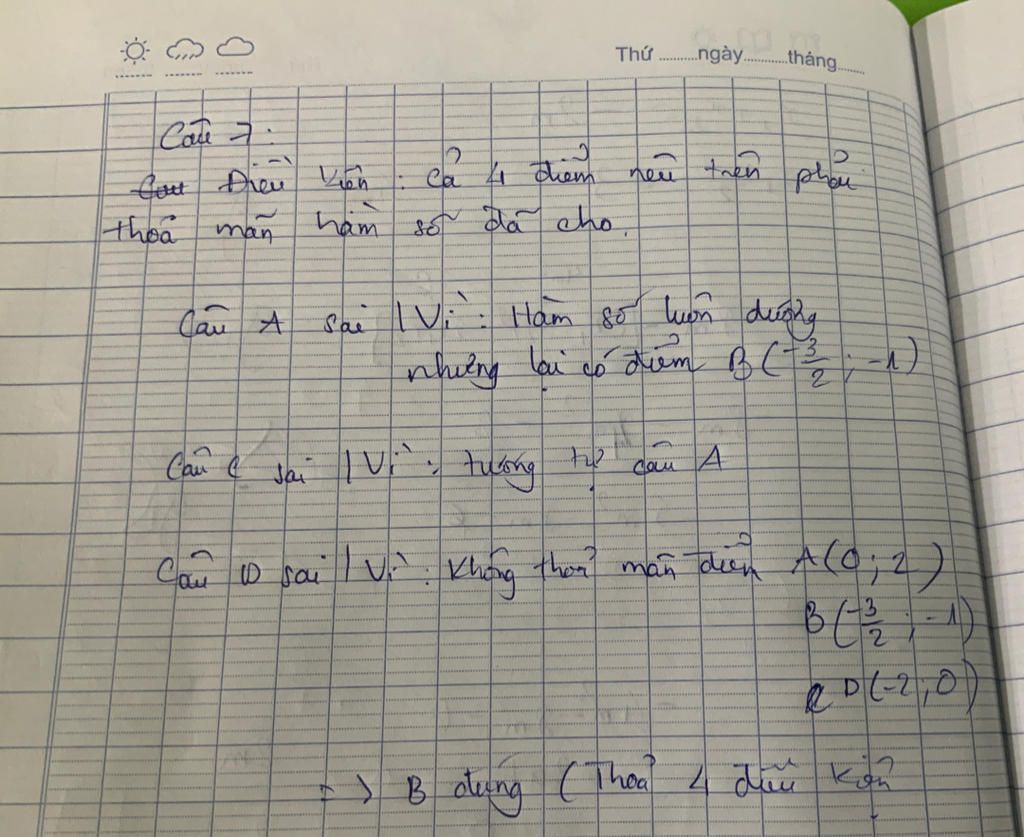 Thứ ..........ngày..........tháng......
Câu 7:
Điều kiện : Cả 4 điểm nêu trên phải
thoả mãn hàm số đã cho.
Câu A sai | Vì : Hàm số luôn dương
nhưng lại có điểm B (-3/2 ; -1)
Câu C sai | Vì : tương tự câu A
Câu D sai | Vì : Không thoả mãn điểm A(0 ; 2)
B (-3/2 ; -1)
D (-2 ; 0)
=> B đúng ( Thoả 4 điều kiện